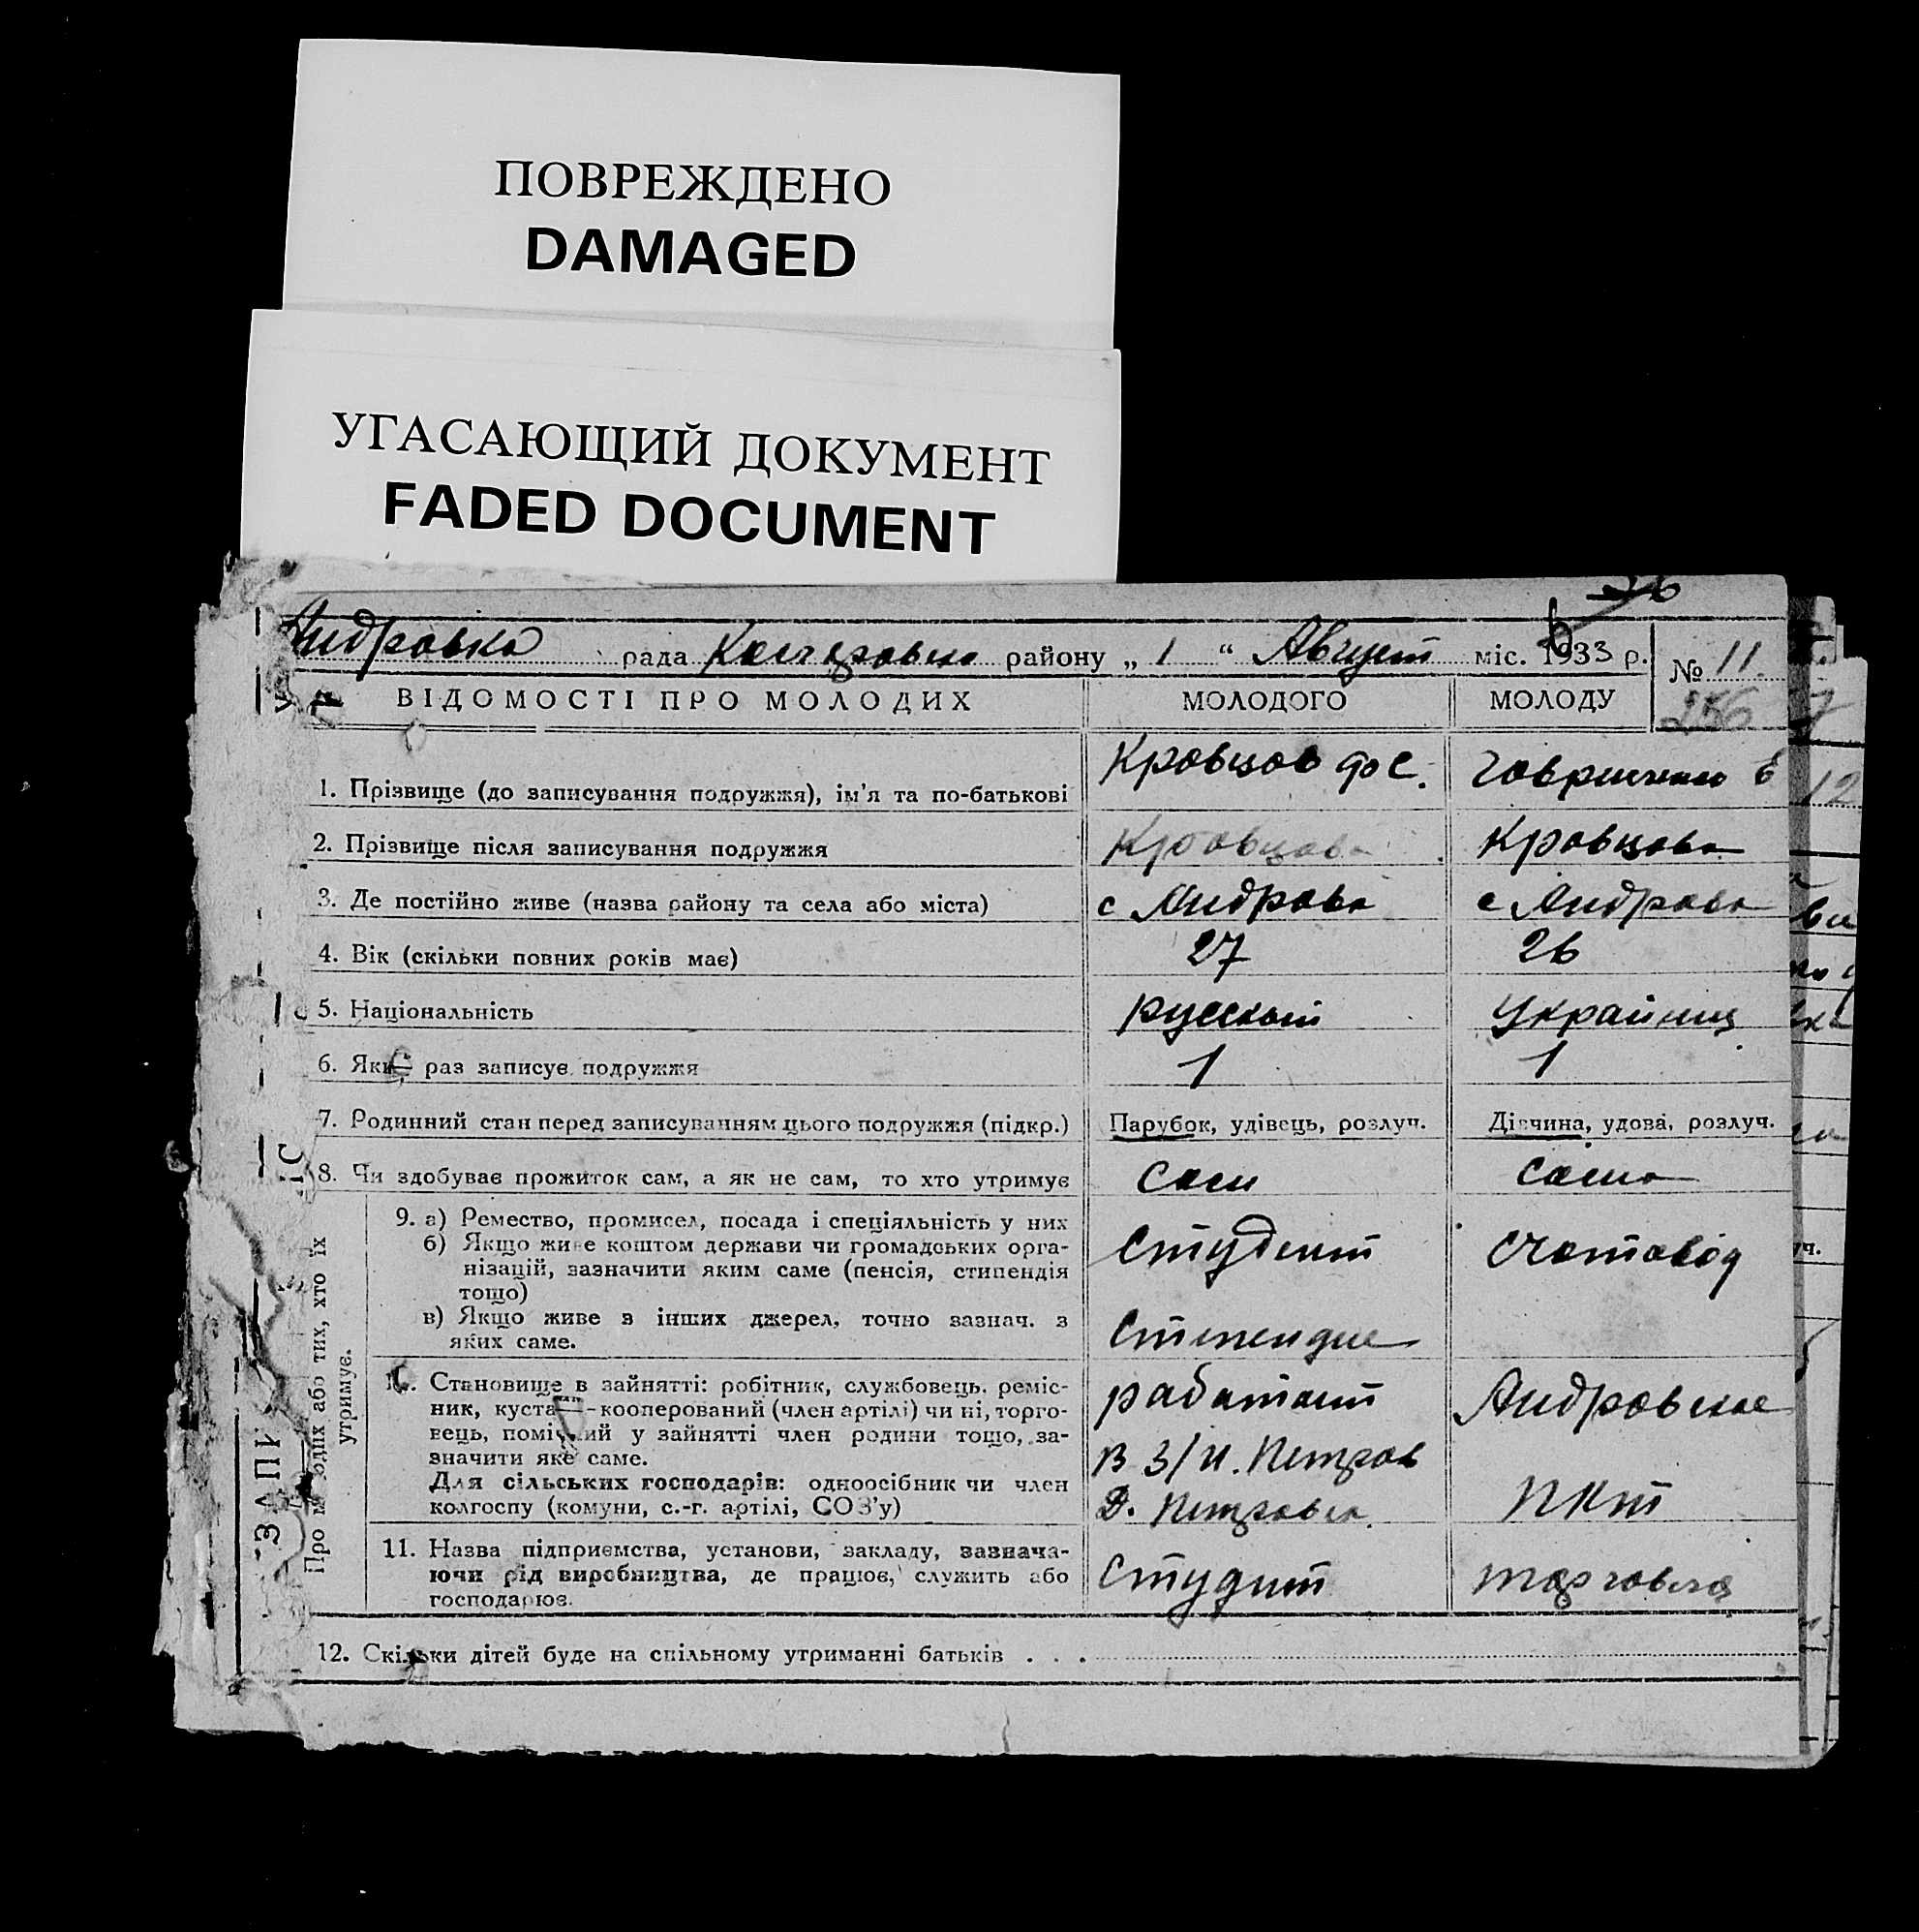 ПОВРЕЖДЕНО
DAMAGED
УГАСАЮЩИЙ ДОКУМЕНТ
FADED DOCUMENT
Андровка рада району „ 1 “ Август міс. 1933 р. № 11
256
ВІДОМОСТІ ПРО МОЛОДИХ МОЛОДОГО МОЛОДУ
1. Прізвище (до записування подружжя), ім’я та по-батькові Кровцов ф С.
2. Прізвище після записування подружжя Кровцова Кровцова
3. Де постійно живе (назва району та села або міста) с Андровка с Андровка
4. Вік (скільки повних років має) 27 26
5. Національність русский Украйинц
6. Який раз записує подружжя 1 1
7. Родинний стан перед записуванням цього подружжя (підкр.) Парубок, удівець, розлуч. Дівчина, удова, розлуч.
8. Чи здобуває прожиток сам, а як не сам, то хто утримує Сам Сама
Про молодих або тих, хто їх утримує.
9. а) Ремество, промисел, посада і спеціяльність у них Студент Счотовод
б) Якщо живе коштом держави чи громадських орга-
нізацій, зазначити яким саме (пенсія, стипендія
тощо)
в) Якщо живе з інших джерел, точно зазнач. з Стипендие
яких саме.
10. Становище в зайнятті: робітник, службовець, реміс- работает Андровское
ник, кустар-кооперований (член артілі) чи ні, торго-
вець, помічний у зайнятті член родини тощо, за- В З/И. Петров
значити яке саме.
Для сільських господарів: одноосібник чи член ПКТ
колгоспу (комуни, с.-г. артілі, СОЗ’у)
11. Назва підприємства, установи, закладу, зазнача- Студит торговля
ючи рід виробництва, де працює, служить або
господарює.
12. Скільки дітей буде на спільному утриманні батьків . . .
ЗАПИ
12